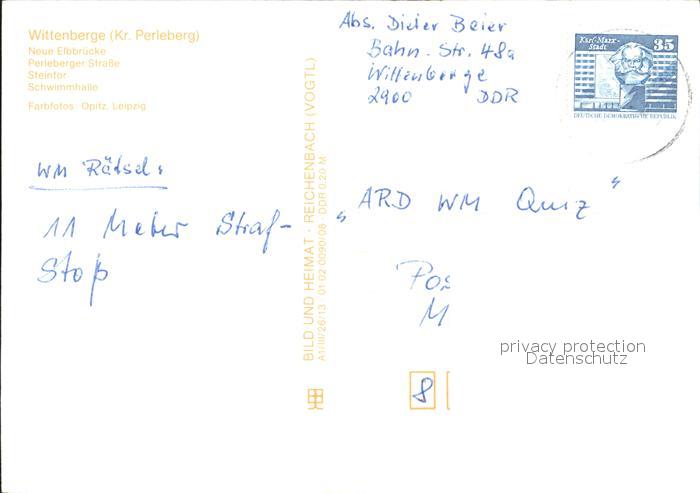 Wittenberge (Kr. Perleberg)
Neue Elbbrücke
Perleberger Straße
Steintor
Schwimmhalle
Farbfotos: Opitz, Leipzig
WM Rätsel:
11 Meter Straf-
Stoß
BILD UND HEIMAT · REICHENBACH (VOGTL)
A1/III/26/13 01 02 0090/08 · DDR 0,20 M
Abs. Dieter Beier
Bahn. Str. 48a
Wittenberge
2900 DDR
Karl-Marx-
Stadt
35
DEUTSCHE DEMOKRATISCHE REPUBLIK
„ARD WM Quiz"
Pos
M
8
privacy protection
Datenschutz